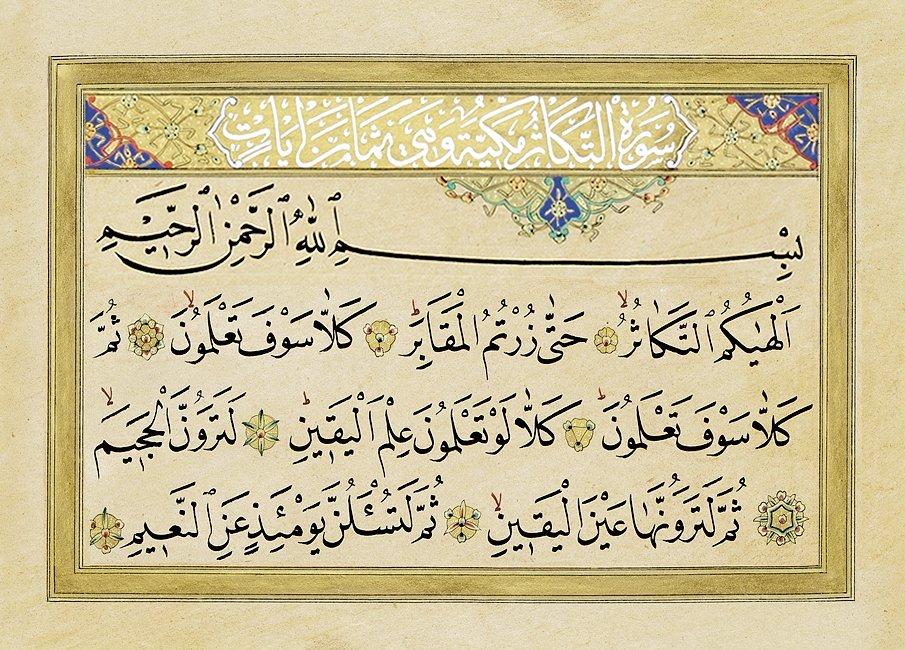 سُورَةُ التَّكَاثُرِ مَكِّيَّةٌ وَهِيَ ثَمَانُ اٰيَاتٍ
بِسْمِ اللّٰهِ الرَّحْمٰنِ الرَّحٖيمِ
اَلْهٰيكُمُ التَّكَاثُرُ ۙ حَتّٰى زُرْتُمُ الْمَقَابِرَ ؕ كَلَّا سَوْفَ تَعْلَمُونَ ۙ ثُمَّ
كَلَّا سَوْفَ تَعْلَمُونَ ؕ كَلَّا لَوْ تَعْلَمُونَ عِلْمَ الْيَقٖينِ ؕ لَتَرَوُنَّ الْجَحٖيمَ ۙ
ثُمَّ لَتَرَوُنَّهَا عَيْنَ الْيَقٖينِ ۙ ثُمَّ لَتُسْـَٔلُنَّ يَوْمَئِذٍ عَنِ النَّعٖيمِ